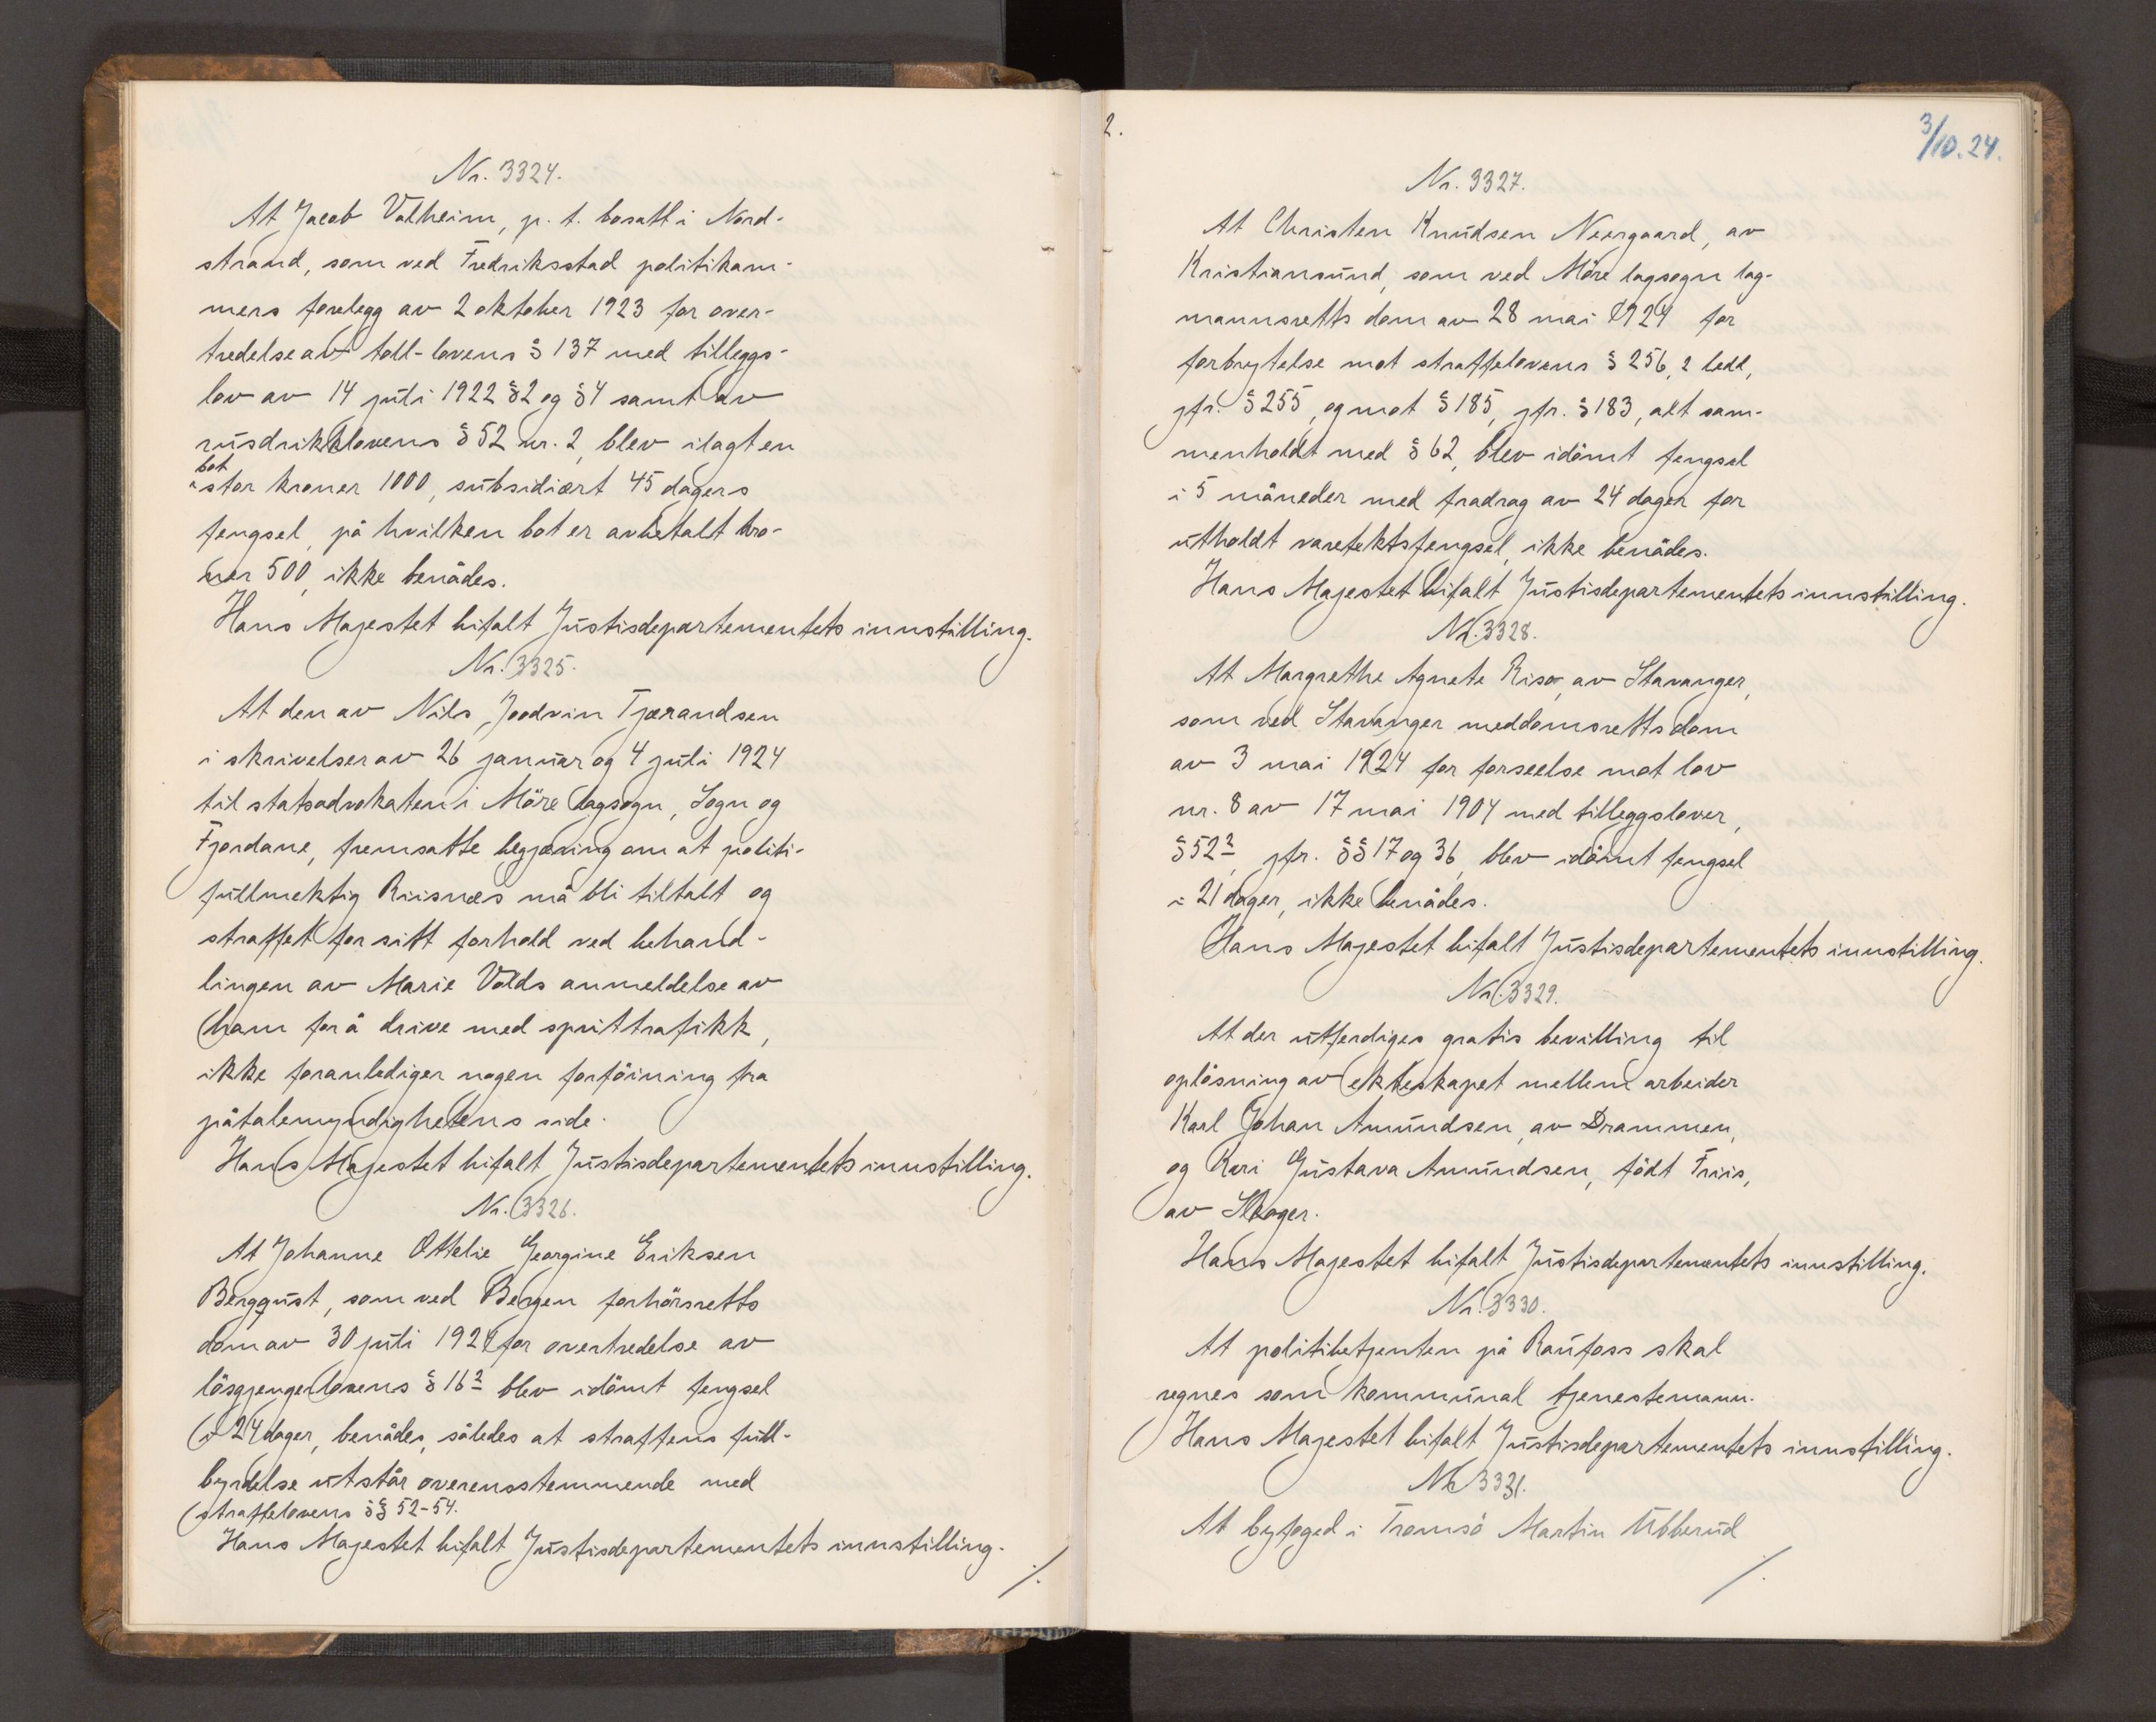 Nr. 3324.
At Jacob Valheim, p. t. bosatt i Nord-
strand, som ved Fredriksstad politikam-
mers forelegg av 2 oktober 1923 for over-
tredelse av toll-lovens § 137 med tilleggs-
lov av 14 juli 1922 §2 og §4 samt av
rusdrikklovens § 52 nr. 2, blev ilagt en
bot
stor kroner 1000, subsidiært 45 dagers
fengsel, på hvilken bot er avbetalt kro-
ner 500, ikke benådes.
Hans Majestet bifalt Justisdepartementets innstilling.
Nr. 3325.
At den av Nils Joodvin Tjærandsen
i skrivelser av 26 januar og 4 juli 1924
til statsadvokaten i Möre lagsogn, Sogn og
Fjordane, fremsatte begjæring om at politi-
fullmektig Riisnæs må bli tiltalt og
straffet for sitt forhold ved behand-
lingen av Marie Volds anmeldelse av
ham for å drive med sprittrafikk,
ikke foranlediger nogen forföining fra
påtalemyndighetens side.
Hans Majestet bifalt Justisdepartementets innstilling.
Nr. 3326.
At Johanne Ottelie Georgine Eriksen
Bergqust, som ved Bergen forhörsretts
dom av 30 juli 1924 for overtredelse av
lösgjengerlovens § 16² blev idömt fengsel
i 24 dager, benådes, således at straffens full-
byrdelse utstår overensstemmende med
straffelovens §§ 52-54.
Hans Majestet bifalt Justisdepartementets innstilling.
./.
2.
3/10.24.
Nr. 3327.
At Christen Knudsen Neergaard, av
Kristiansund, som ved Möre lagsogn lag-
mannsretts dom av 28 mai 1924 for
forbrytelse mot straffelovens § 256, 2 ledd,
jfr. § 255, og mot § 185, jfr. § 183, alt sam-
menholdt med § 62, blev idömt fengsel
i 5 måneder med fradrag av 24 dager for
utholdt varetektsfengsel, ikke benådes.
Hans Majestet bifalt Justisdepartementets innstilling.
Nr. 3328.
At Margrethe Agnete Risa, av Stavanger,
som ved Stavanger meddomsretts dom
av 3 mai 1924 for forseelse mot lov
nr. 8 av 17 mai 1904 med tilleggslover,
§ 52², jfr. §§ 17 og 36, blev idömt fengsel
i 21 dager, ikke benådes.
Hans Majestet bifalt Justisdepartementets innstilling.
Nr. 3329.
At der utferdiges gratis bevilling til
oplösning av ekteskapet mellem arbeider
Karl Johan Amundsen, av Drammen,
og Kari Gustava Amundsen, födt Friis,
av Skoger.
Hans Majestet bifalt Justisdepartementets innstilling.
Nr. 3330.
At politibetjenten på Raufoss skal
regnes som kommunal tjenestemann.
Hans Majestet bifalt Justisdepartementets innstilling.
Nr. 3331.
At byfoged i Tromsö Martin Ubberud
./.